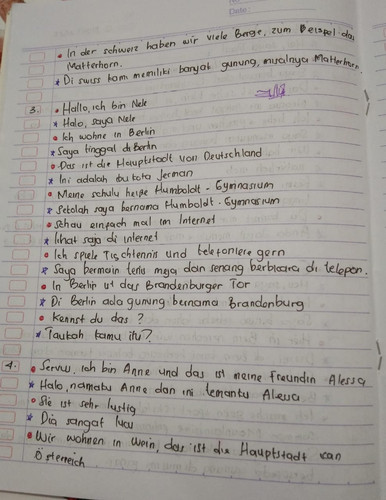 • In der schweiz haben wir viele Berge, zum Beispiel das
Matterhorn.
* Di swiss kam memiliki banyak gunung, misalnya Matterhorn.
3. • Hallo, ich bin Nele
* Halo, saya Nele
• Ich wohne in Berlin
* Saya tinggal di Berlin
• Das ist die Hauptstadt von Deutschland
* Ini adalah ibu kota Jerman
• Meine schule heiße Humboldt - Gymnasium
* Sekolah saya bernama Humboldt - Gymnasium
• schau einfach mal im Internet
* lihat saja di internet
• Ich spiele Tischtennis und telefoniere gern
* Saya bermain tenis meja dan senang berbicara di telepon.
• In Berlin ist das Brandenburger Tor
* Di Berlin ada gunung bernama Brandenburg
• Kennst du das ?
* Taukah kamu itu?
4. • Servus, ich bin Anne und das ist meine Freundin Alessa
* Halo, namaku Anne dan ini temanku Alessa
• Sie ist sehr lustig
* Dia sangat lucu
• Wir wohnen in Wein, das ist die Hauptstadt van
Österreich.